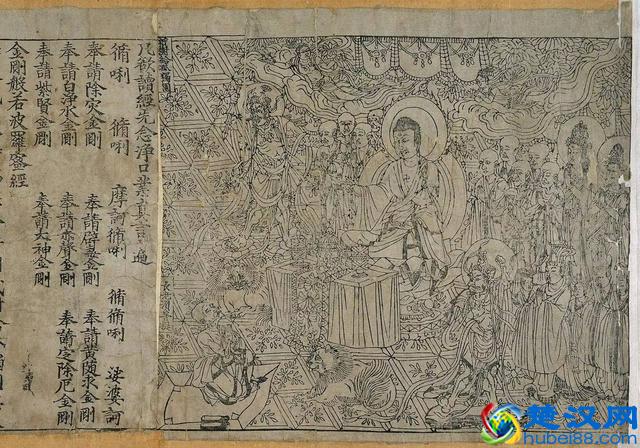 祇樹給孤獨園
凡欲讀經先念淨口業真言一遍
脩唎 脩唎 摩訶脩唎 脩脩唎 娑婆訶
奉請除灾金剛 奉請辟毒金剛 奉請黃隨求金剛
奉請白淨水金剛 奉請赤聲金剛 奉請定除厄金剛
奉請紫賢金剛 奉請大神金剛
金剛般若波羅蜜經
楚汉网
hubei88.com